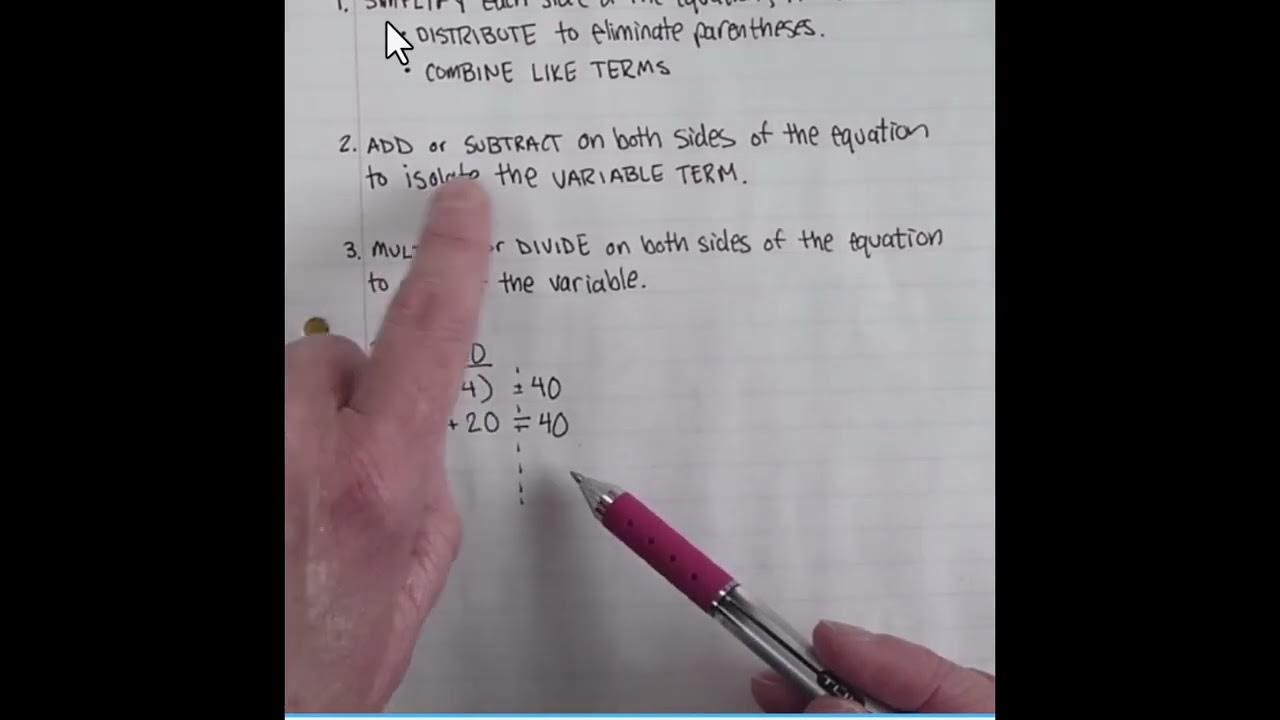 1. SIMPLIFY each side of the equation,
• DISTRIBUTE to eliminate parentheses.
• COMBINE LIKE TERMS
2. ADD or SUBTRACT on both sides of the equation
to isolate the VARIABLE TERM.
3. MUL or DIVIDE on both sides of the equation
to the variable.
4) = 40
+ 20 = 40